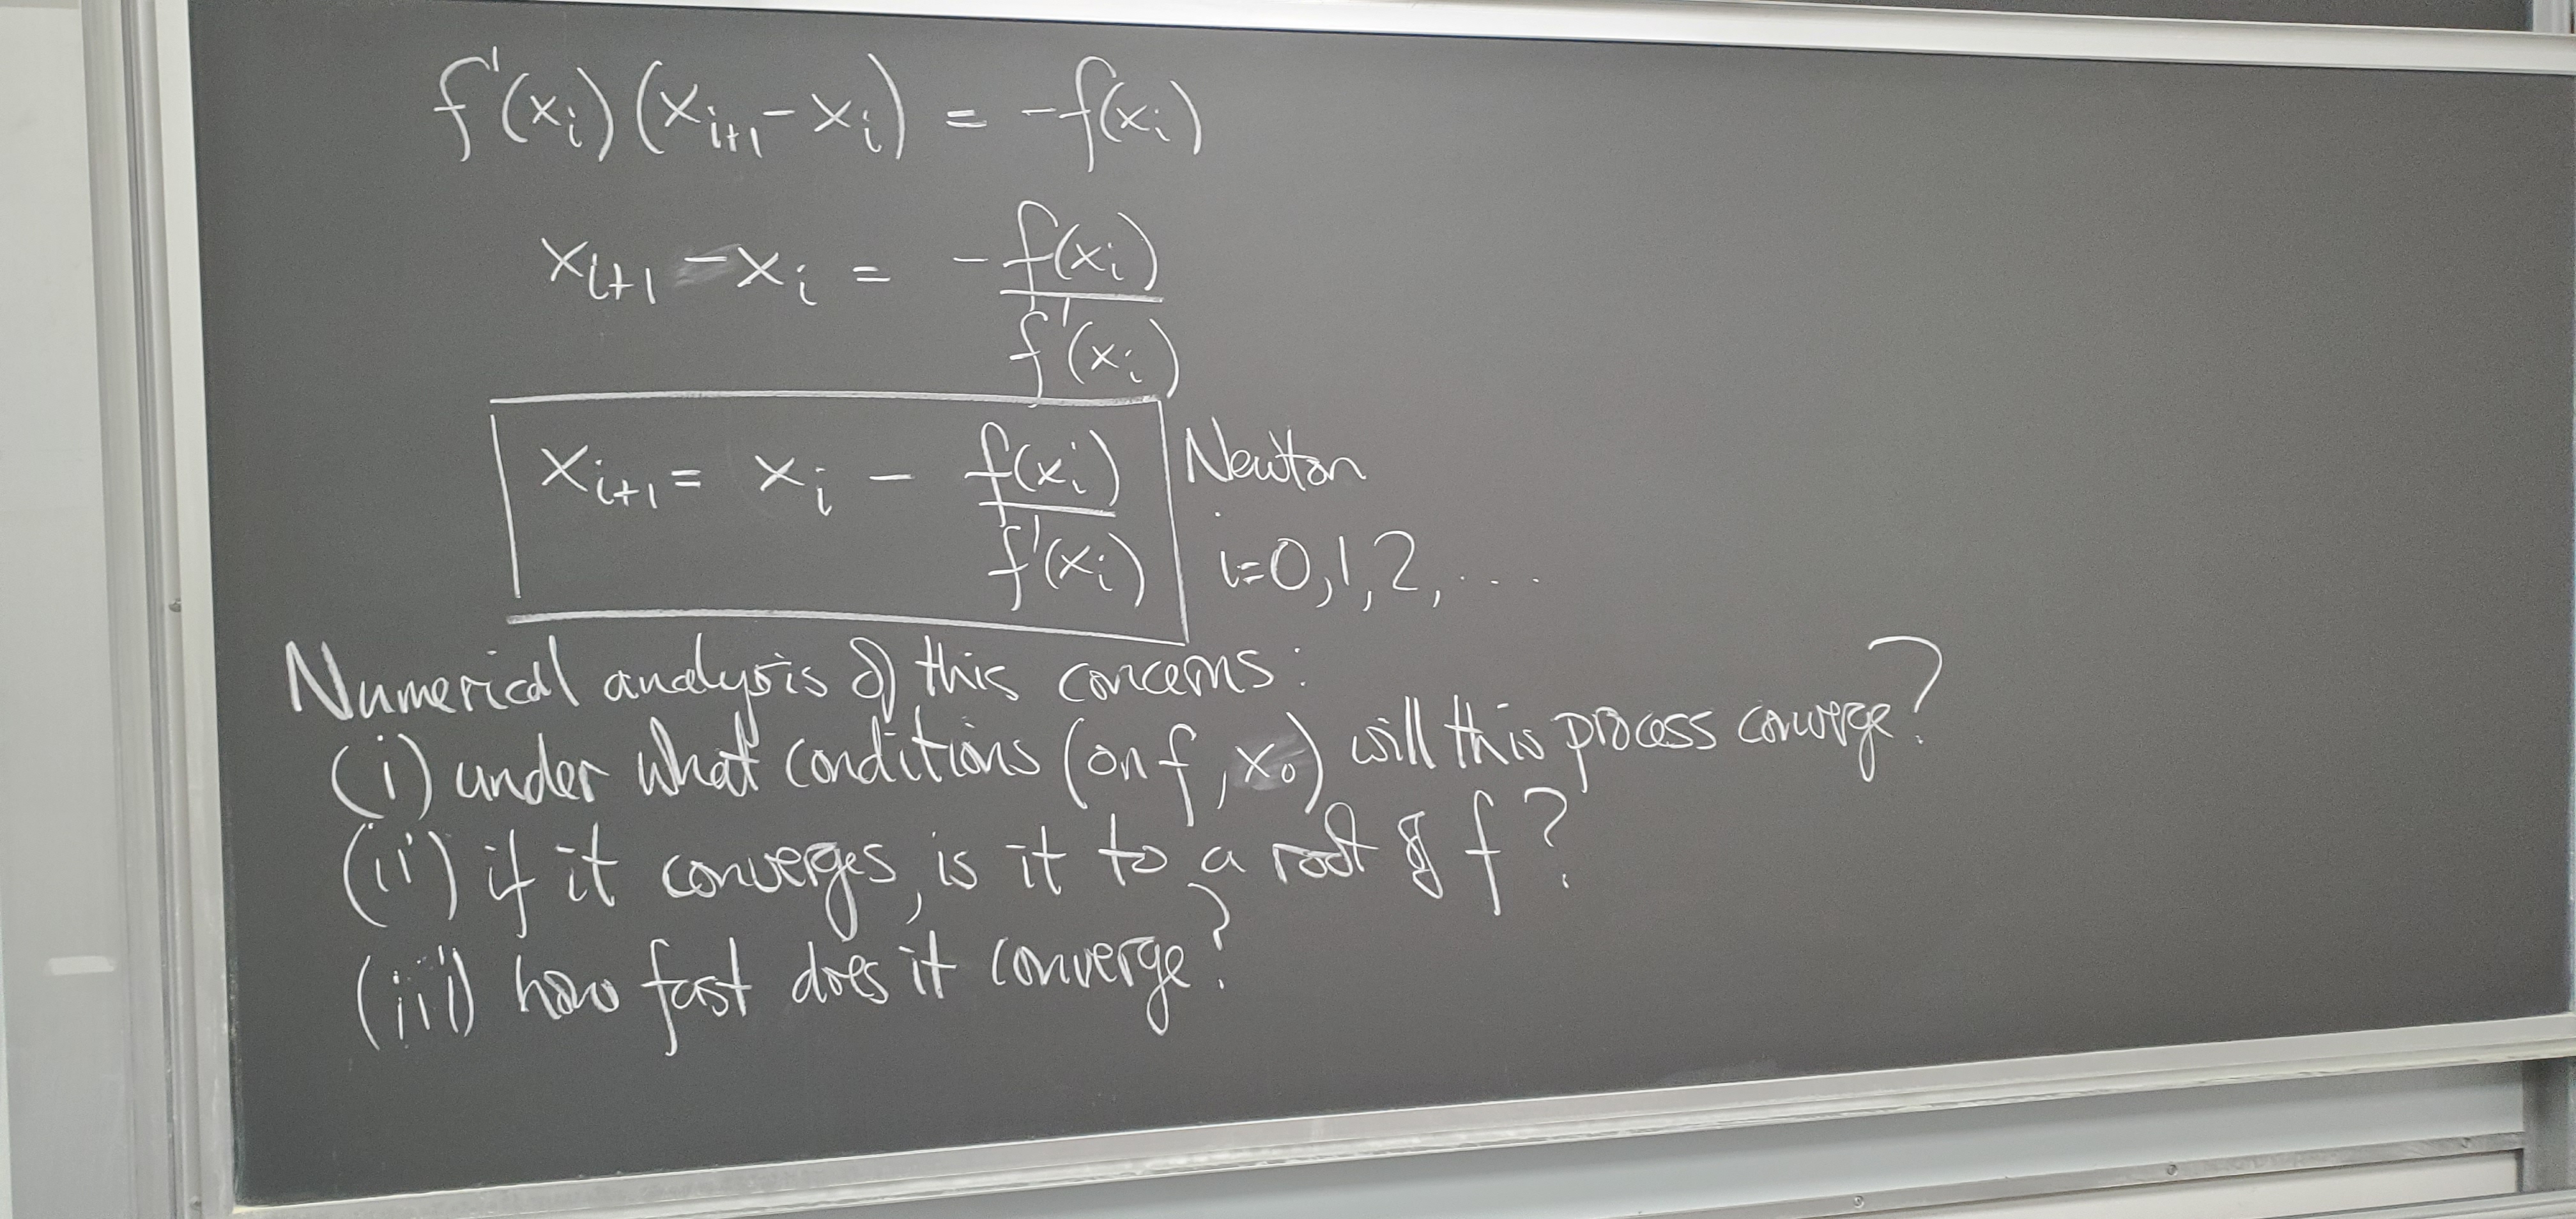 f'(x_i)(x_{i+1} - x_i) = -f(x_i)
x_{i+1} - x_i = - f(x_i) / f'(x_i)
x_{i+1} = x_i - f(x_i) / f'(x_i) Newton
i=0,1,2,...
Numerical analysis of this concerns:
(i) under what conditions (on f, x_0) will this process converge?
(ii) if it converges, is it to a root of f?
(iii) how fast does it converge?